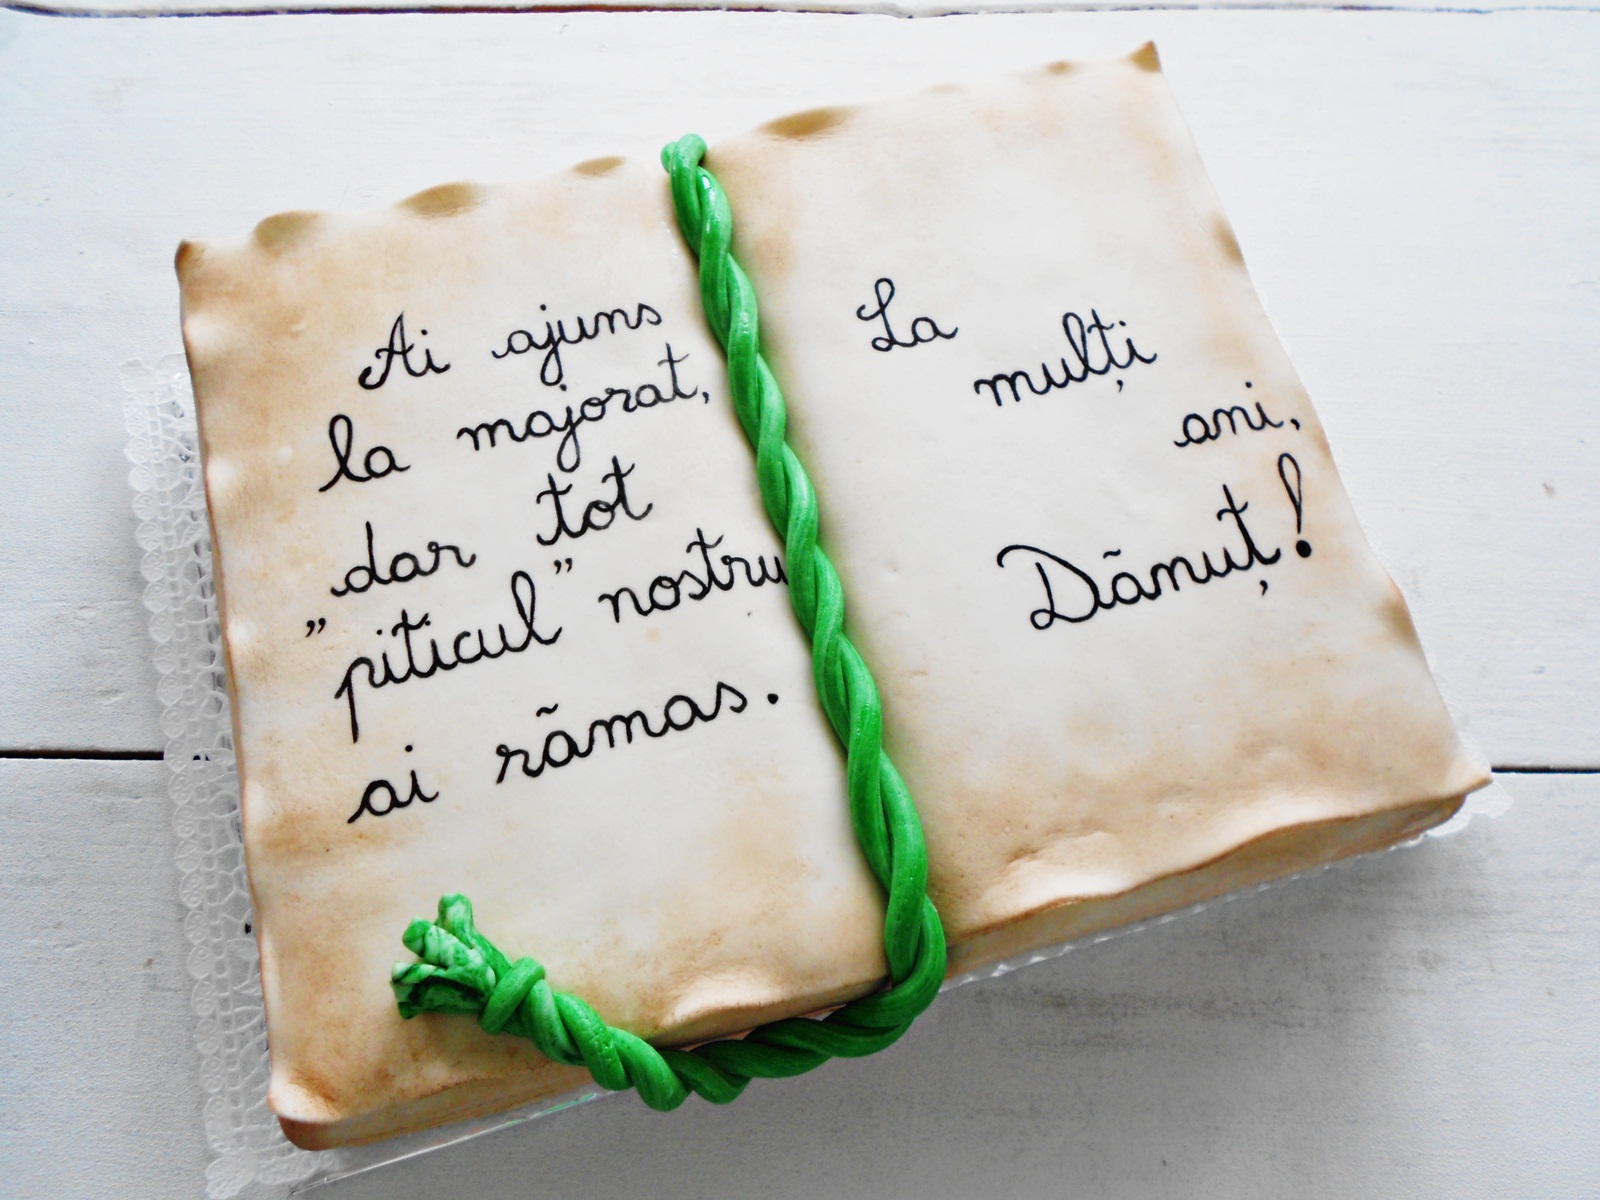 Ai ajuns
la majorat,
dar tot
”piticul” nostru
ai rãmas.
La
mulți
ani,
Dãnuț!